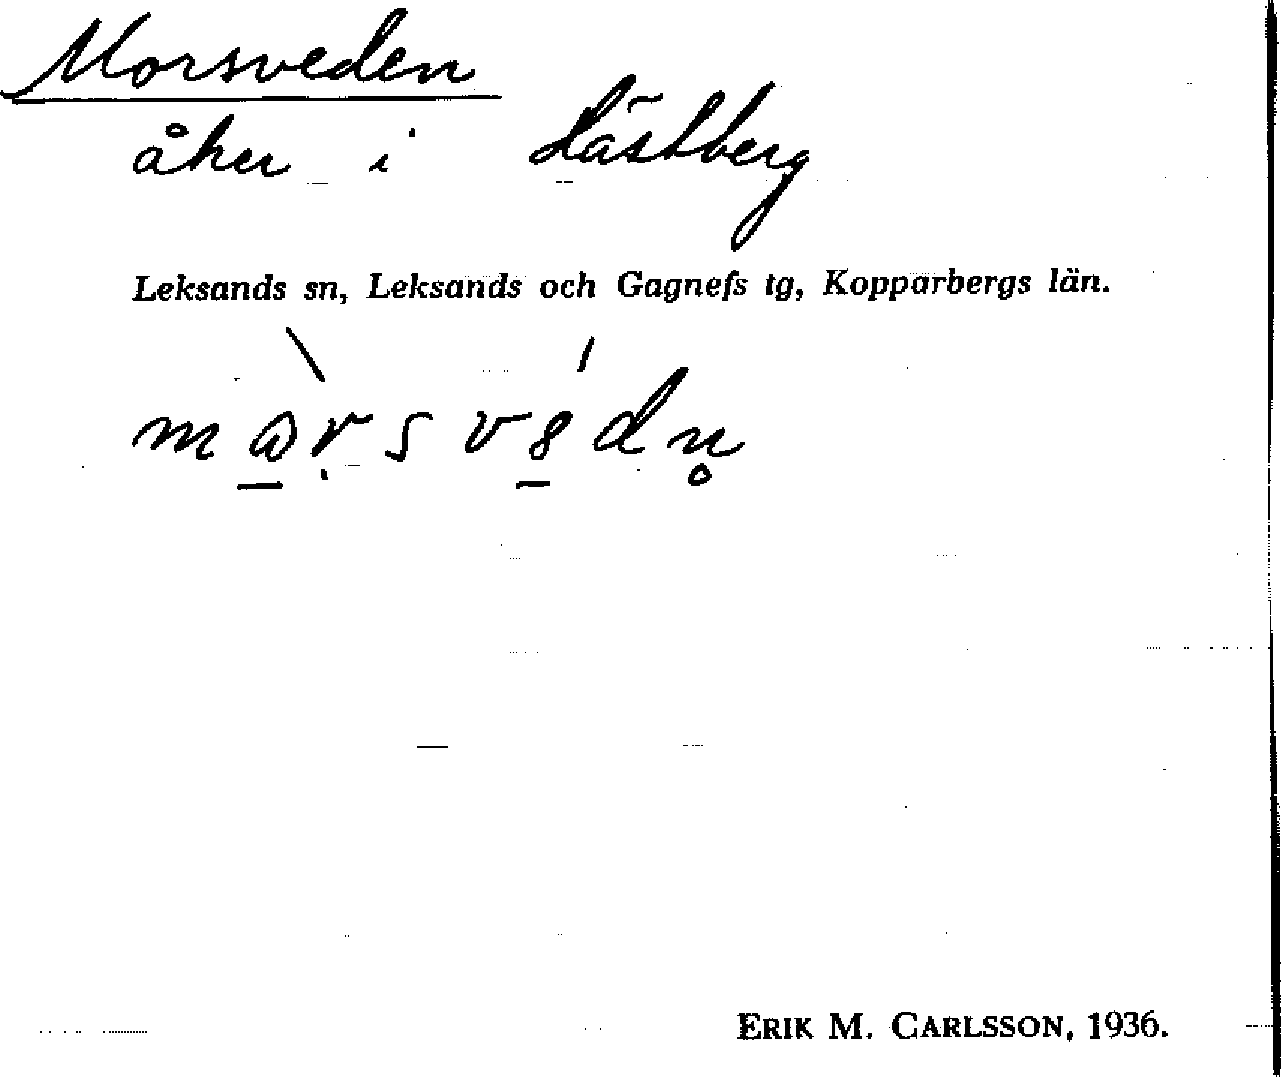 Morsveden
åker i Hästberg
Leksands sn, Leksands och Gagnefs tg, Kopparbergs län.
ERIK M. CARLSSON, 1936.